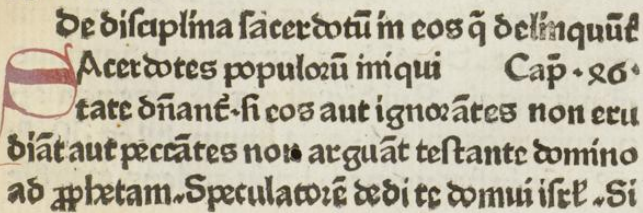 De disciplina sacerdotū in eos q̄ delinquūt
SAcerdotes populorū iniqui Cap̄·xlvi·
tate dn̄ant̄·si eos aut ignorātes non eru
diāt aut peccātes non arguāt testante domino
ad ꝓphetam. Speculatorē dedi te domui isrl̄. Si